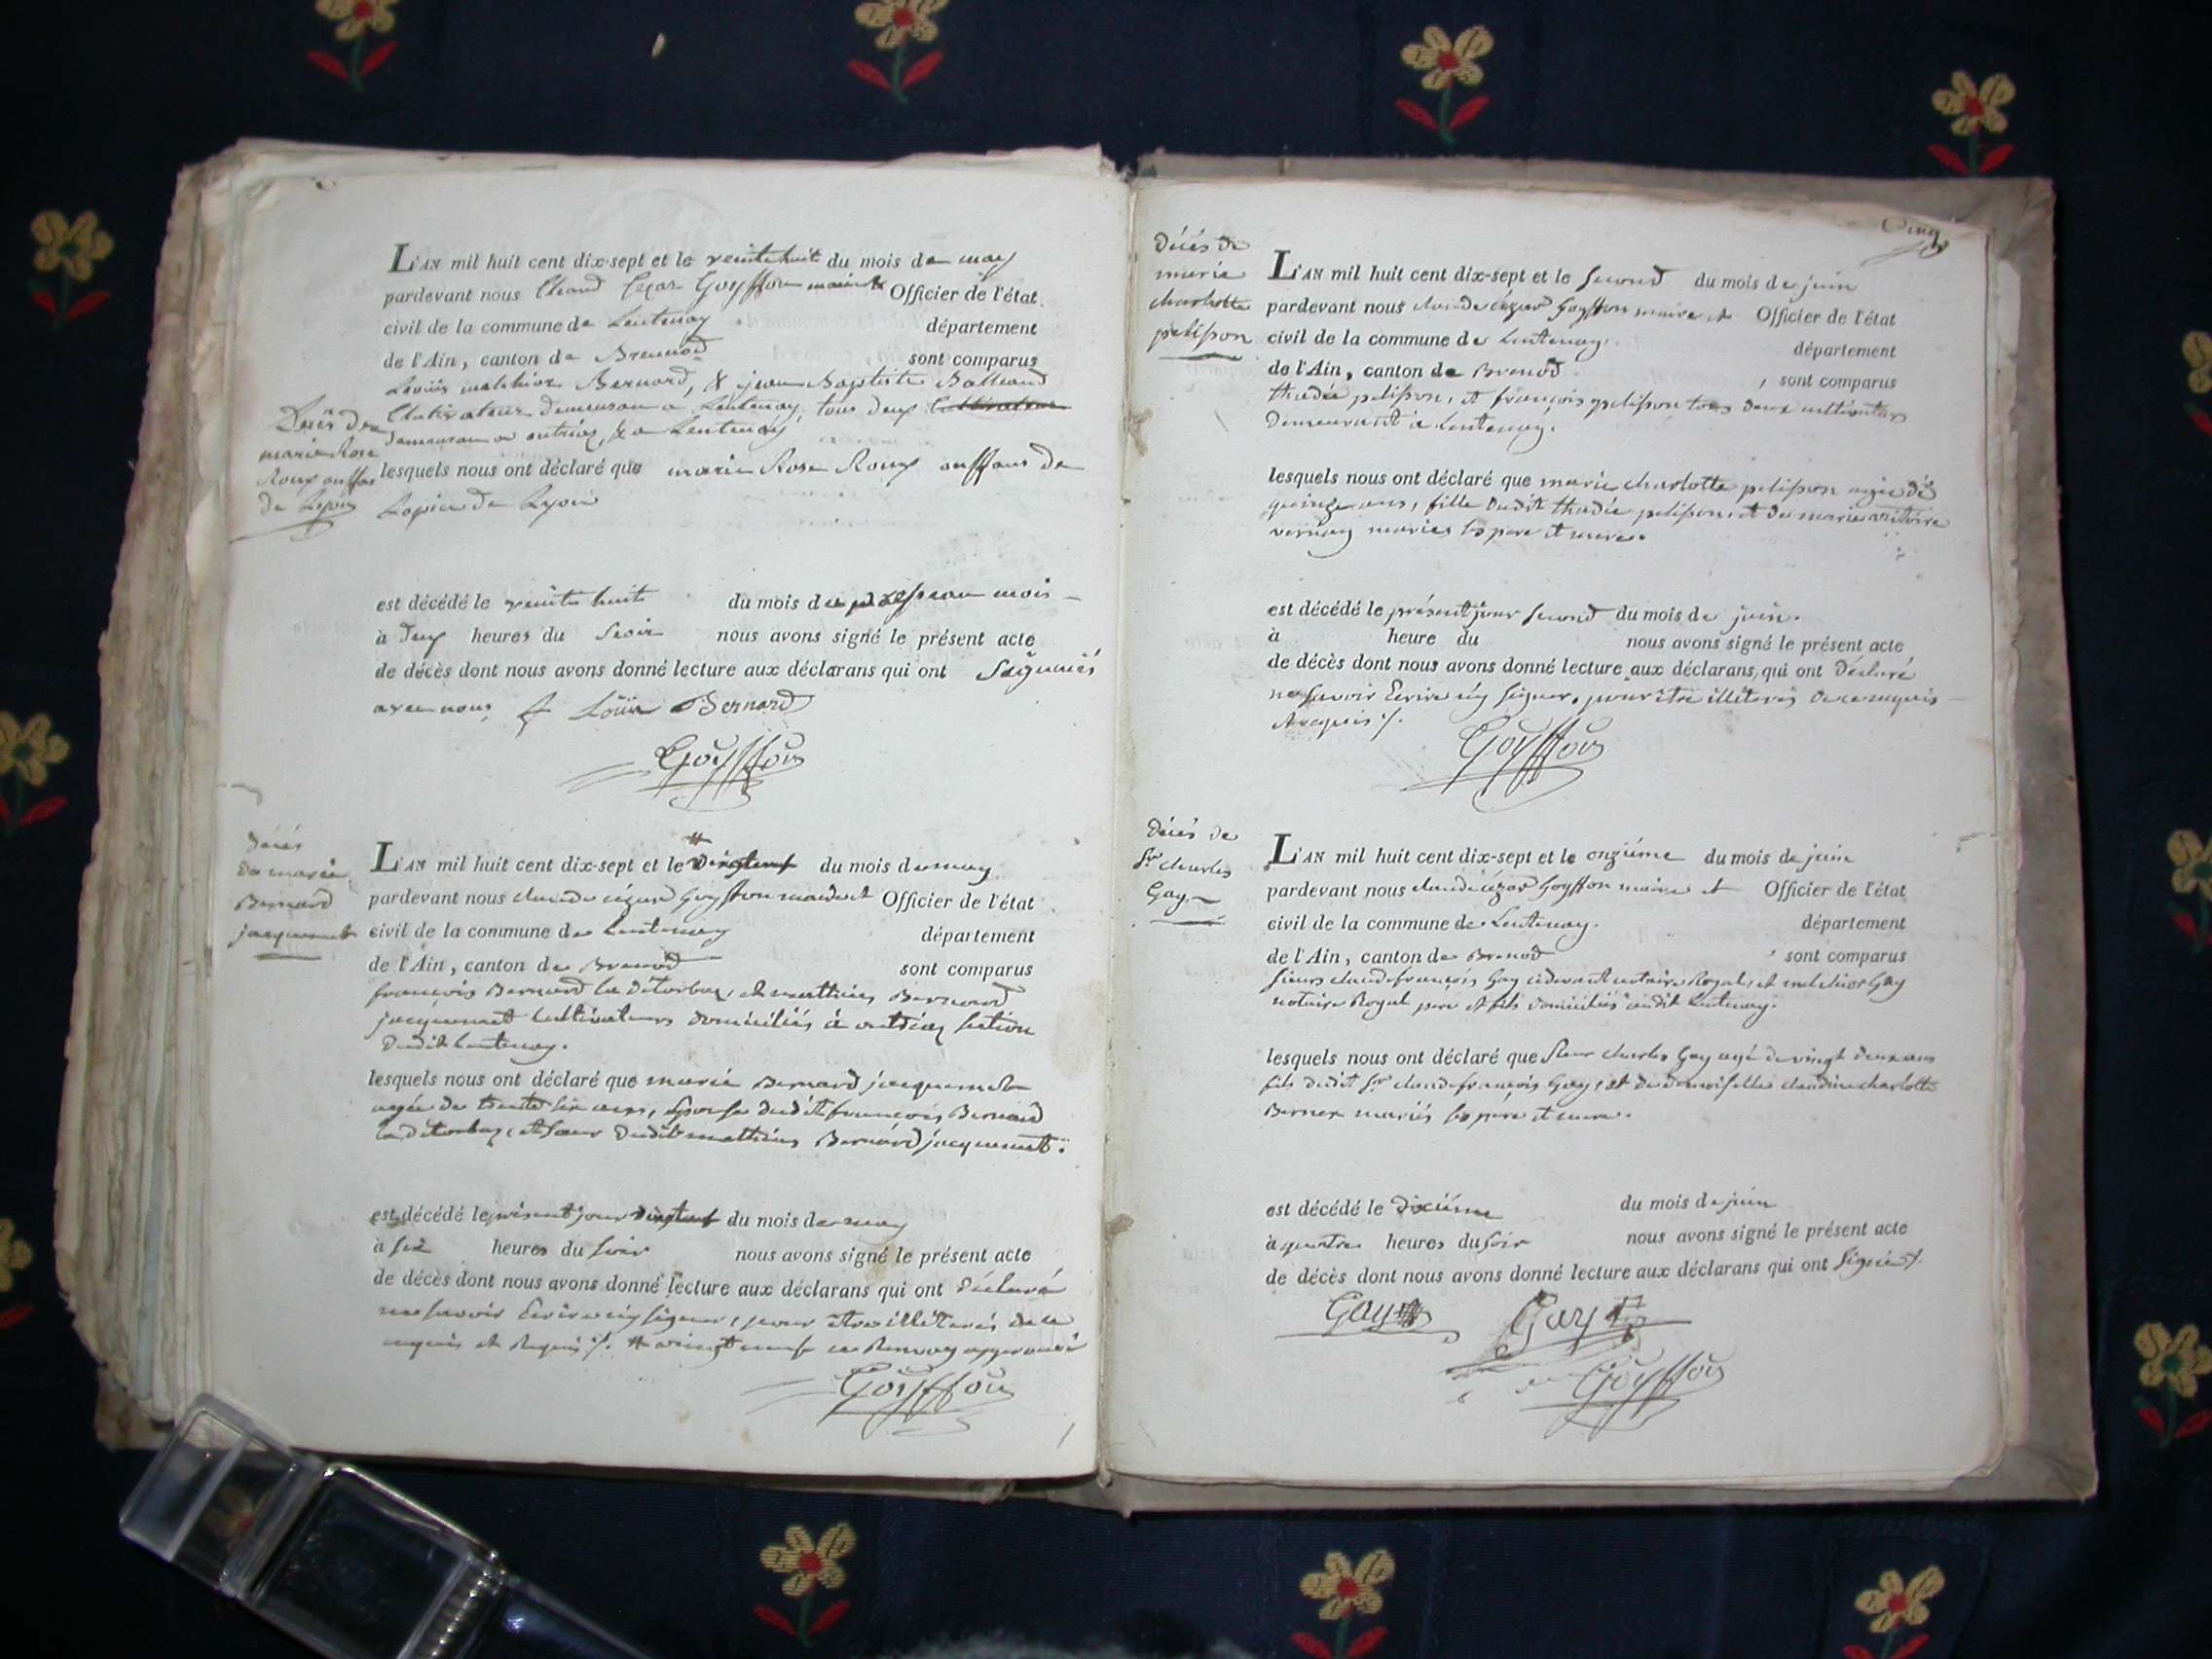 L'AN mil huit cent dix-sept et le veinte huit du mois de may
pardevant nous Claud Cezar Goyffon maire & Officier de l'état
civil de la commune de Lentenay département
de l'Ain, canton de Brennod sont comparus
Louis melchior Bernard, & jean Baptiste Balleand
Cultivateur demeuran a Lentenay, tous deux Cultivateur
demeuran a outriaz, & a Lentenay
Decès de
marie Rose
Roux anffan
de Lyon
lesquels nous ont déclaré que marie Rose Roux anffans de
Lopice de Lyon
est décédé le veinte huit du mois de presean mois
à deux heures du Seoir nous avons signé le présent acte
de décès dont nous avons donné lecture aux déclarans qui ont Saigniés
avec nous Louis Bernard
Goyffon
Décés
de marie
Bernard
jacquemet
L'AN mil huit cent dix-sept et le # vingt neuf du mois de may
pardevant nous claude cézar Goyffon maire et Officier de l'état
civil de la commune de Lentenay département
de l'Ain, canton de Brenod sont comparus
françois Bernard la détorbaz, et matthieu Bernard
jacquemet cultivateurs domiciliés à outriaz section
dudit Lentenay.
lesquels nous ont déclaré que marie Bernard jacquemet
agée de trente six ans, Epouse dudit françois Bernard
la détorbaz, et soeur dudit matthieu Bernard jacquemet.
est décédé le présent jour du mois de may
à six heures du soir nous avons signé le présent acte
de décès dont nous avons donné lecture aux déclarans qui ont déclaré
ne savoir Ecrire ny signer, pour être illiterés de ce
enquis et Requis ./. # vingt neuf ce Renvoy approuvé
Goyffon
Cinq
Décés de
marie
charlotte
pelisson
L'AN mil huit cent dix-sept et le second du mois de juin
pardevant nous claude cézar Goyffon maire et Officier de l'état
civil de la commune de Lentenay. département
de l'Ain, canton de Brenod , sont comparus
thadée pelisson, et françois pelisson tous deux cultivateurs
Demeurant à Lentenay.
lesquels nous ont déclaré que marie charlotte pelisson agée de
quinze ans, fille dudit thadée pelisson, et de marie victoire
vernay mariés ses pere et mere.
est décédé le présent jour second du mois de juin.
à heure du nous avons signé le présent acte
de décès dont nous avons donné lecture aux déclarans, qui ont déclaré
ne savoir Ecrire ny signer, pour être illiterés de ce enquis
& requis ./.
Goyffon
Décés de
Sr charles
Gay
L'AN mil huit cent dix-sept et le onziéme du mois de juin
pardevant nous claude cézar Goyffon maire et Officier de l'état
civil de la commune de Lentenay. département
de l'Ain, canton de Brenod , sont comparus
sieurs claude françois Gay cidevant notaire Royal, et melchior Gay
notaire Royal pere et fils domiciliés audit Lentenay.
lesquels nous ont déclaré que sieur charles Gay agé de vingt deux ans
fils dudit Sr claude françois Gay, et de demoiselle claudine charlotte
Bernex mariés ses pere et mere.
est décédé le dixiéme du mois de juin
à quatre heures du soir nous avons signé le présent acte
de décès dont nous avons donné lecture aux déclarans qui ont signé ./.
Gay Gay
Goyffon